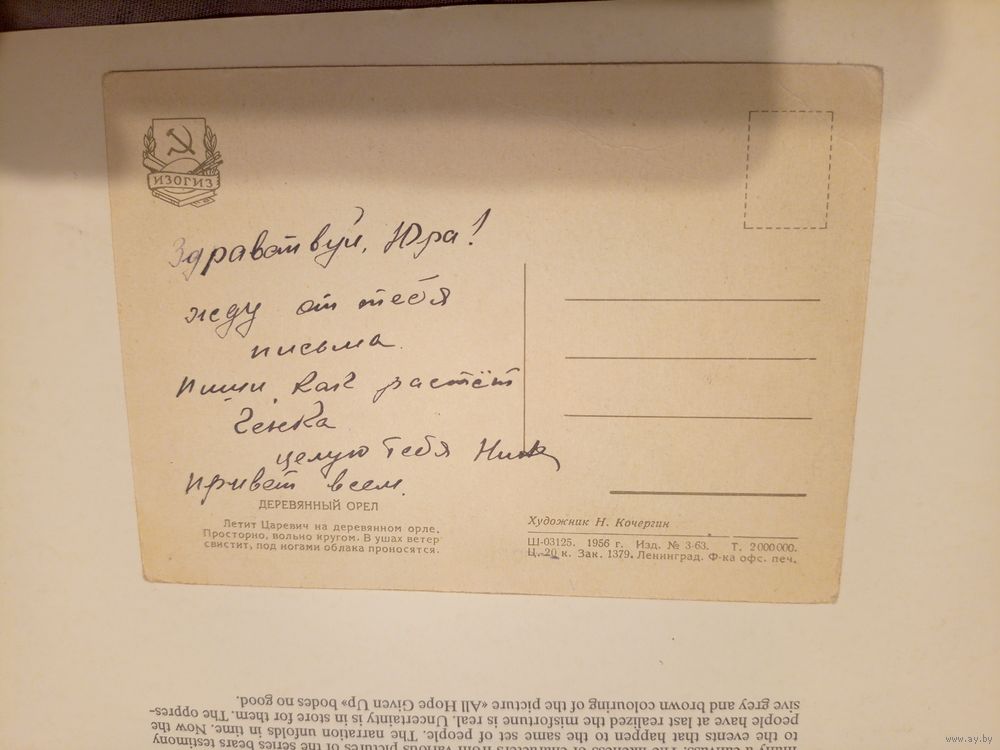 ИЗОГИЗ
Здравствуй, Юра!
жду от тебя
письма.
Пиши, как растёт
Генка
целую тебя
Привет всем.
ДЕРЕВЯННЫЙ ОРЕЛ
Летит Царевич на деревянном орле.
Просторно, вольно кругом. В ушах ветер
свистит, под ногами облака проносятся.
Художник Н. Кочергин
Ш-03125. 1956 г. Изд. № 3-63. Т. 2000000.
Ц. 20 к. Зак. 1379. Ленинград. Ф-ка офс. печ.
sive grey and brown colouring of the picture «All Hope Given Up» bodes no good.
people have at last realized the misfortune is real. Uncertainty is in store for them. The oppres-
to the events that happen to the same set of people. The narration unfolds in time. Now the
many a canvas. The likeness of characters from various pictures of the series bears testimony
www.ay.by